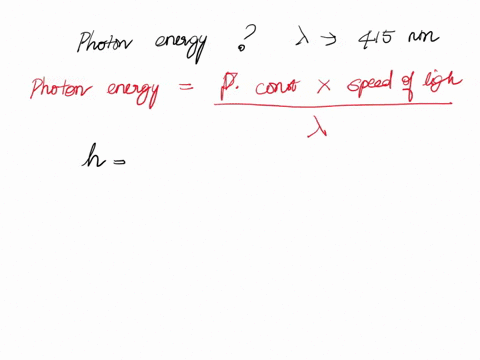 Photon energy ? λ → 415 nm
Photon energy = P. const × speed of ligh
λ
h =